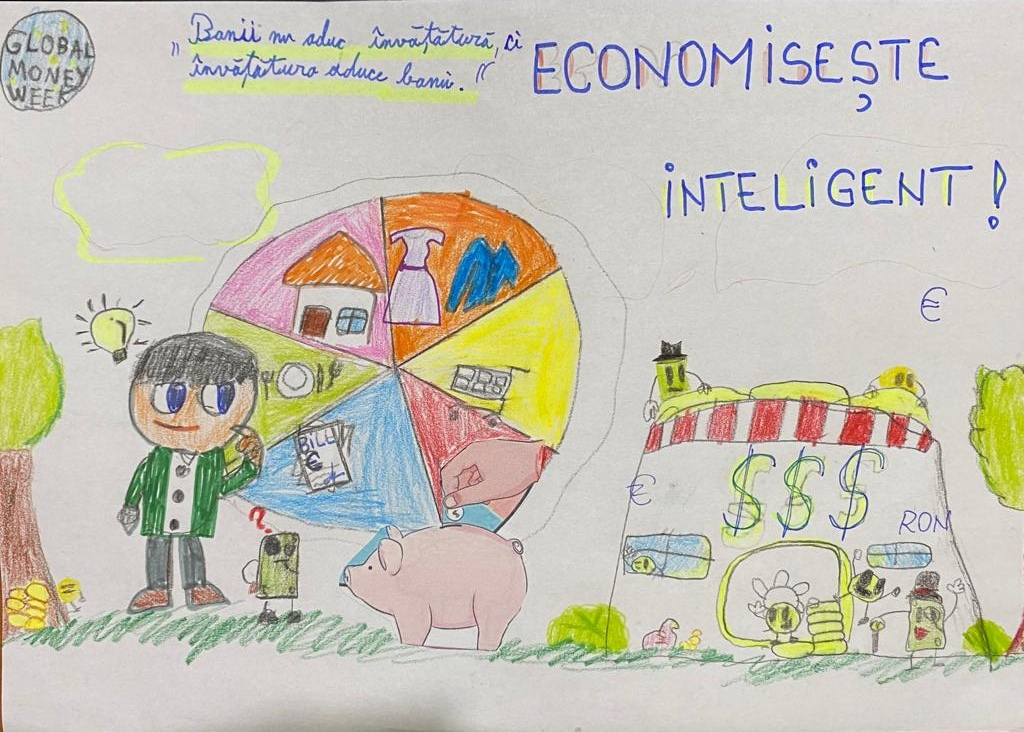 GLOBAL
MONEY
WEEK
„Banii nu aduc învățătură, ci
învățătura aduce banii.“
ECONOMISEȘTE
INTELIGENT!
BILL
€
?
€
€
$$$
RON